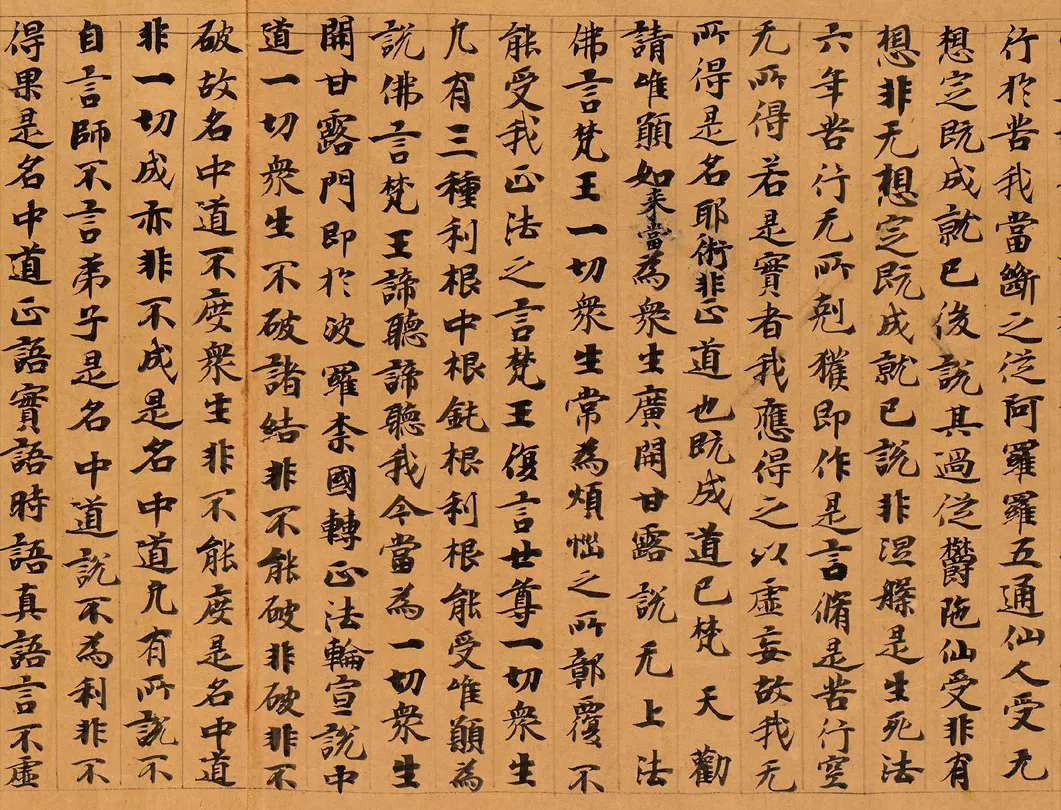 行於苦我當斷之從阿羅羅五通仙人受无
想定既成就已後說其過從欝陁仙受非有
想非无想定既成就已說非涅槃是生死法
六年苦行无所剋獲即作是言脩是苦行空
无所得若是實者我應得之以虛妄故我无
所得是名耶術非正道也既成道已梵天勸
請唯願如来當為衆生廣開甘露說无上法
佛言梵王一切衆生常為煩惱之所鄣覆不
能受我正法之言梵王復言世尊一切衆生
凡有三種利根中根鈍根利根能受唯願為
說佛言梵王諦聽諦聽我今當為一切衆生
開甘露門即於波羅柰國轉正法輪宣說中
道一切衆生不破諸結非不能破非破非不
破故名中道不度衆生非不能度是名中道
非一切成亦非不成是名中道凡有所說不
自言師不言弟子是名中道說不為利非不
得果是名中道正語實語時語真語言不虛